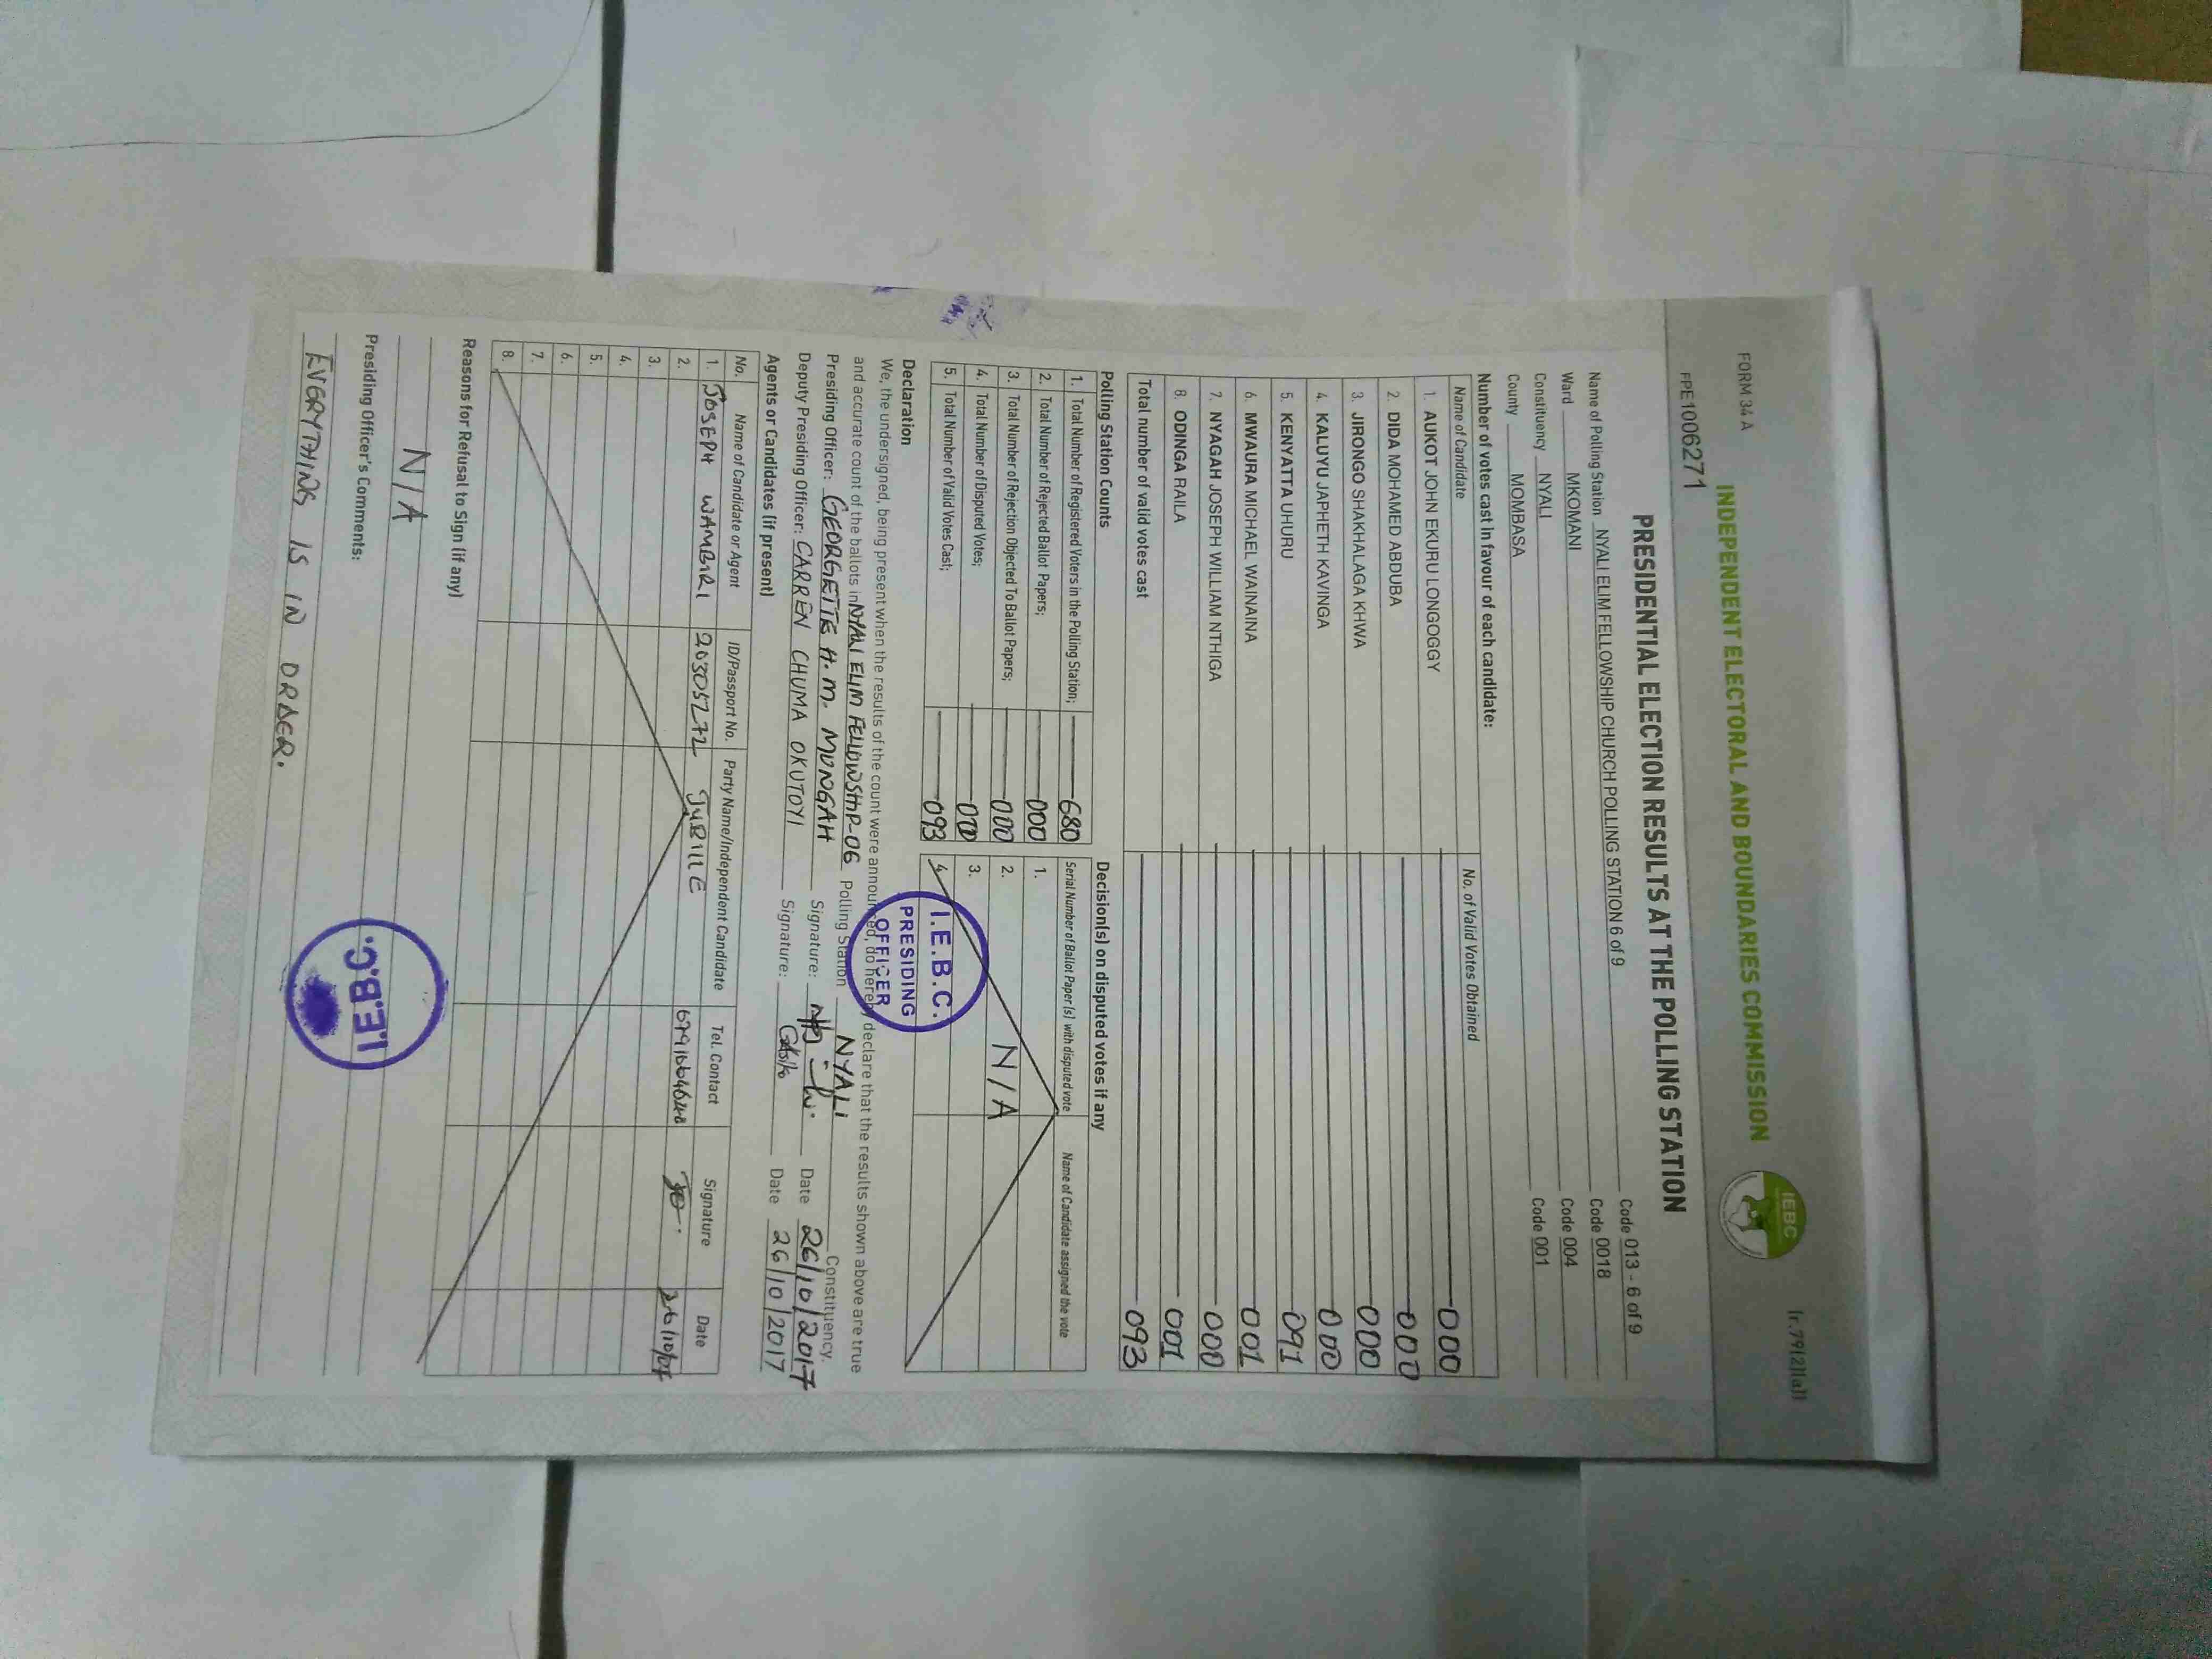 FORM 34 A
INDEPENDENT ELECTORAL AND BOUNDARIES COMMISSION
IEBC
(r.79(2)(a))
FPE1006271
PRESIDENTIAL ELECTION RESULTS AT THE POLLING STATION
Name of Polling Station NYALI ELIM FELLOWSHIP CHURCH POLLING STATION 6 of 9 Code 013 - 6 of 9
Ward MKOMANI Code 0018
Constituency NYALI Code 004
County MOMBASA Code 001
Number of votes cast in favour of each candidate:
Name of Candidate No. of Valid Votes Obtained
1. AUKOT JOHN EKURU LONGOGGY 000
2. DIDA MOHAMED ABDUBA 000
3. JIRONGO SHAKHALAGA KHWA 000
4. KALUYU JAPHETH KAVINGA 000
5. KENYATTA UHURU 091
6. MWAURA MICHAEL WAINAINA 001
7. NYAGAH JOSEPH WILLIAM NTHIGA 000
8. ODINGA RAILA 001
Total number of valid votes cast 093
Polling Station Counts
1. Total Number of Registered Voters in the Polling Station; 680
2. Total Number of Rejected Ballot Papers; 000
3. Total Number of Rejection Objected To Ballot Papers; 000
4. Total Number of Disputed Votes; 000
5. Total Number of Valid Votes Cast; 093
Decision(s) on disputed votes if any
Serial Number of Ballot Paper (s) with disputed vote Name of Candidate assigned the vote
1.
2. N/A
3.
4.
I.E.B.C.
PRESIDING
OFFICER
Declaration
We, the undersigned, being present when the results of the count were announced, do hereby declare that the results shown above are true
and accurate count of the ballots in NYALI ELIM FELLOWSHIP-06 Polling Station NYALI Constituency.
Presiding Officer: GEORGETTE H. M. MUNGAH Signature: Date 26/10/2017
Deputy Presiding Officer: CARREN CHUMA OKUTOYI Signature: Date 26/10/2017
Agents or Candidates (if present)
No. Name of Candidate or Agent ID/Passport No. Party Name/Independent Candidate Tel. Contact Signature Date
1. JOSEPH WAMBIRI 20305272 JUBILLE 26/10/07
2.
3.
4.
5.
6.
7.
8.
Reasons for Refusal to Sign (if any)
N/A
Presiding Officer's Comments:
EVERYTHING IS IN ORDER.
I.E.B.C.